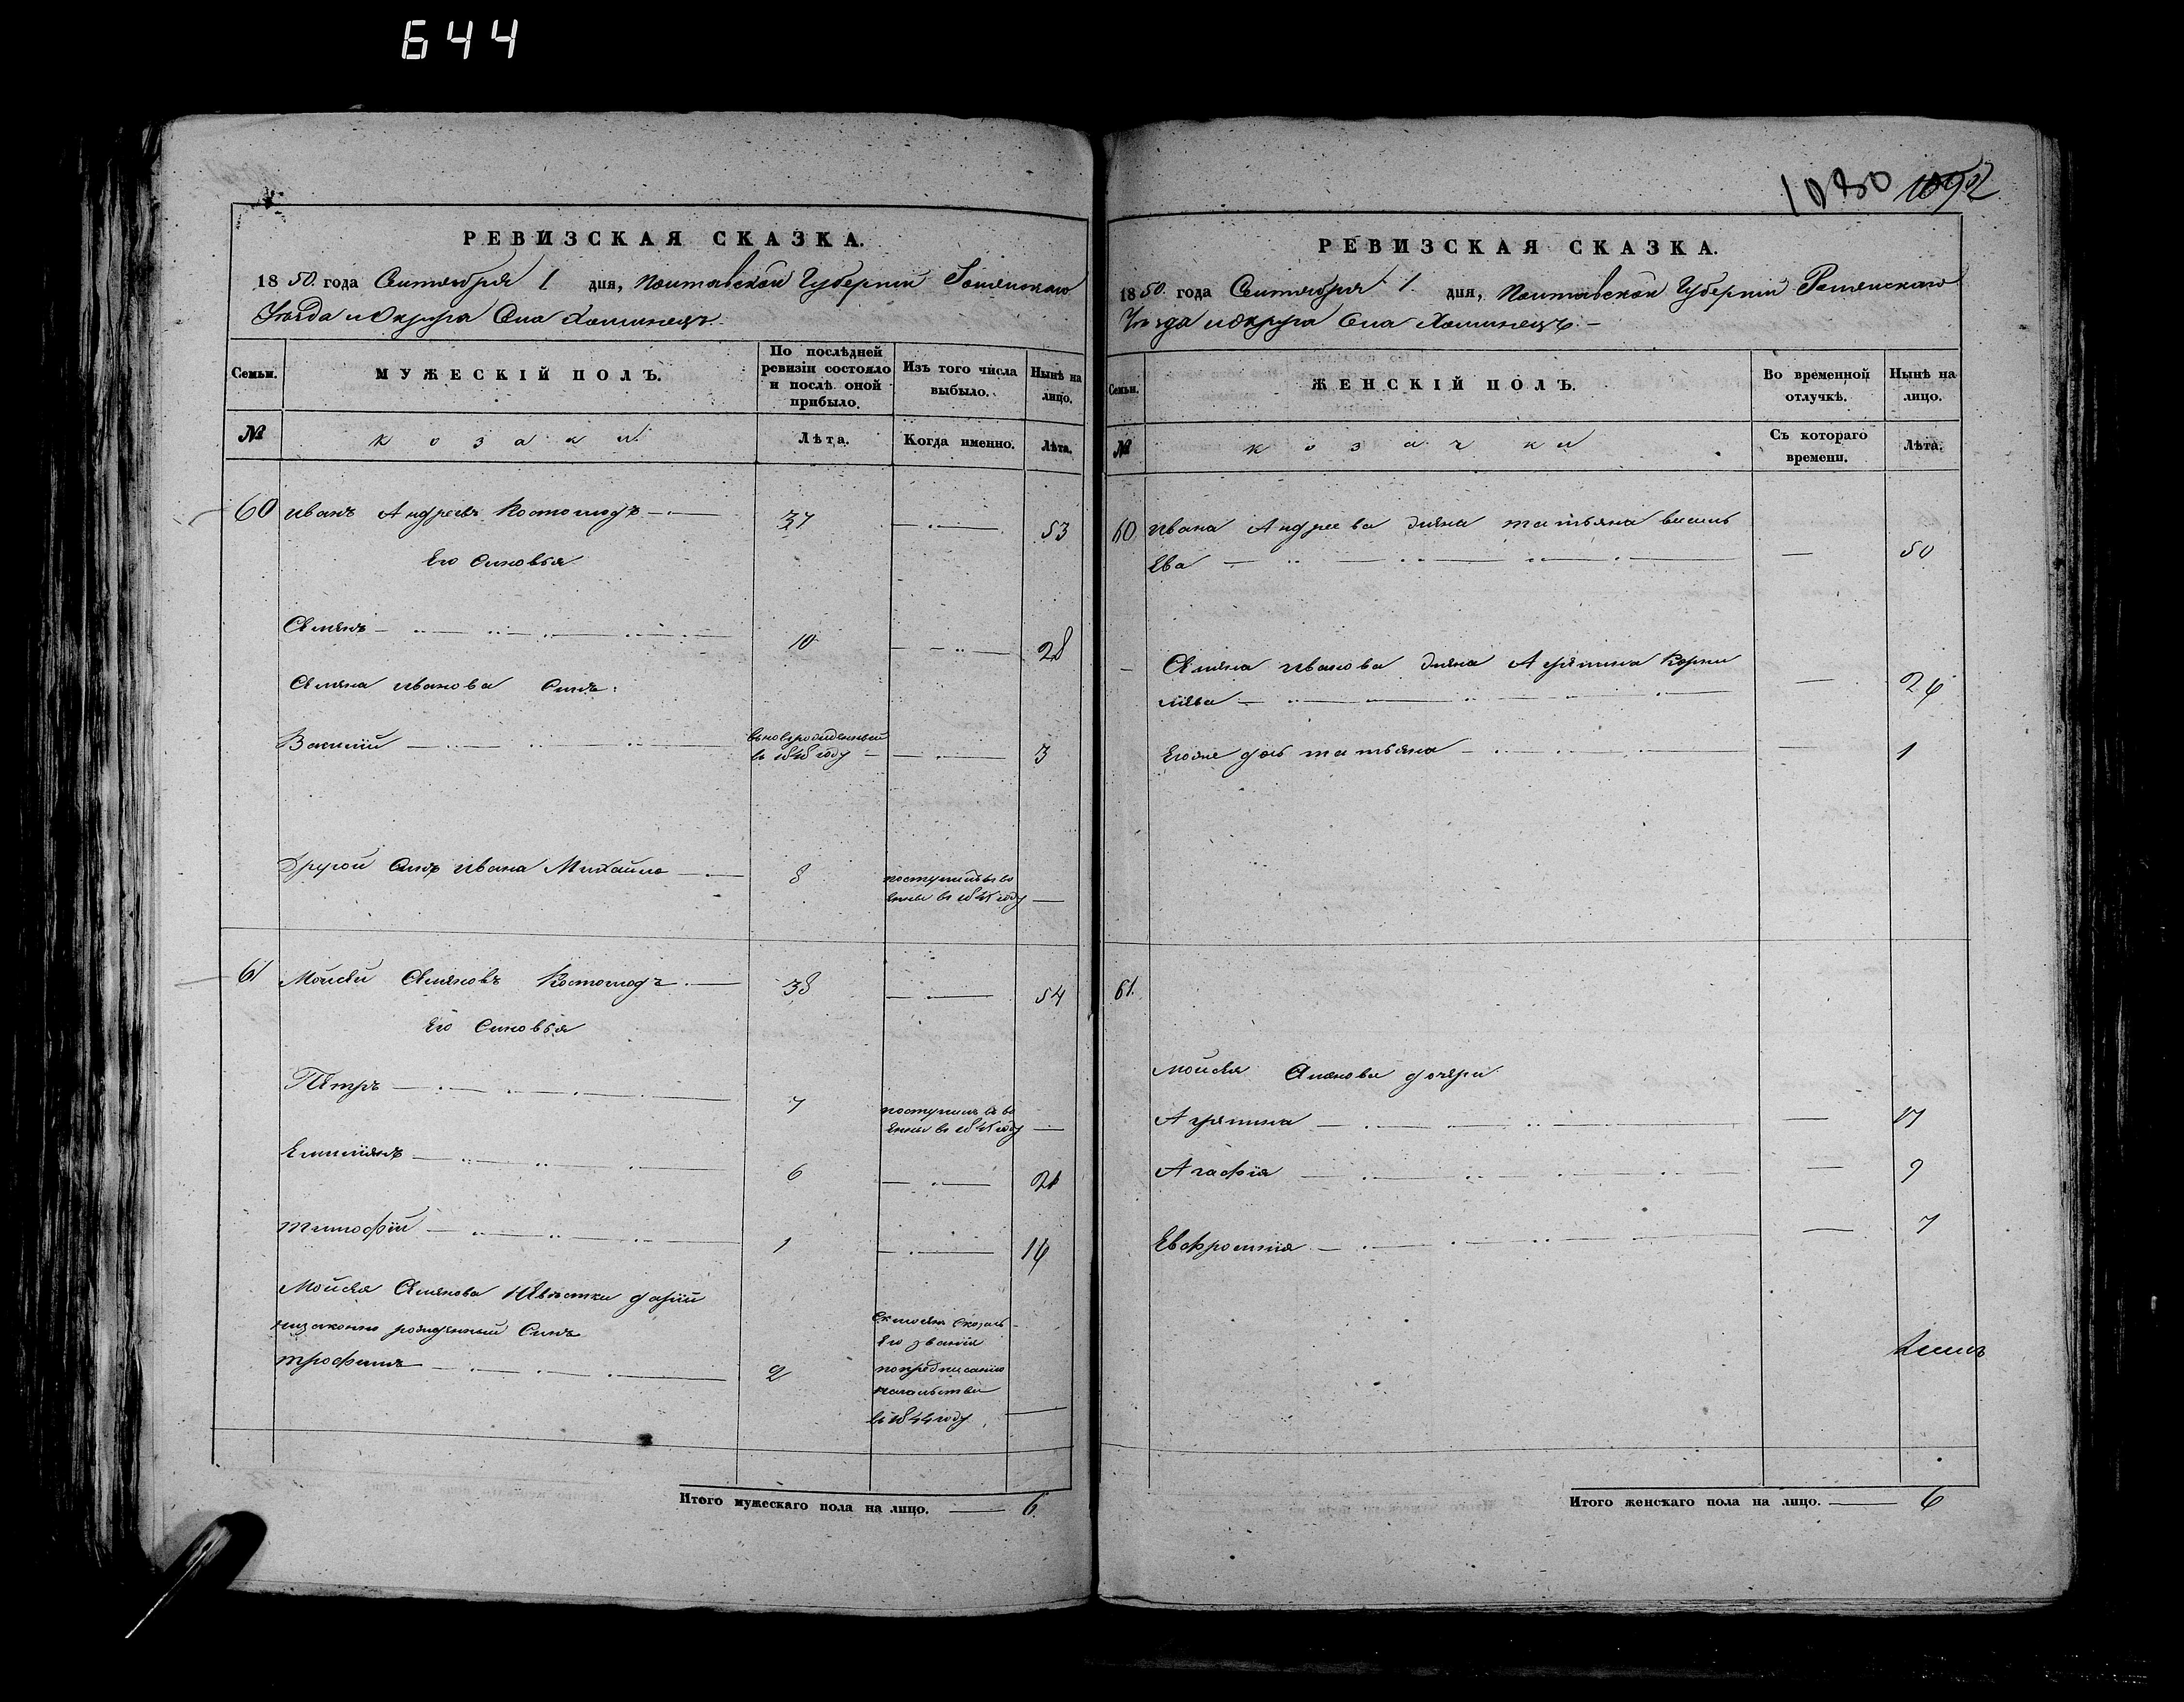 644
РЕВИЗСКАЯ СКАЗКА.
1850. года Сентября 1 дня, Полтавской Губернии Роменскаго
Уезда и Округа Села Хоминецъ.
Семьи.
МУЖЕСКІЙ ПОЛЪ.
По послѣдней
ревизіи состояло
и послѣ оной
прибыло.
Изъ того числа
выбыло.
Нынѣ на
лицо.
№
козаки
Лѣта.
Когда именно.
Лѣта.
60 Иванъ Андреевъ Костогиодъ 37 53
Его Синовья
Семенъ 10 28
Семена Иванова Синъ:
Василій вьноврожденный
въ 1848 году 3
Другой Синъ Ивана Михайло 8 поступилъ въ во
енны в 1845 году
61 Мойсей Семеновъ Костогиодъ 38 54
Его Синовья
Петръ 7 поступилъ въ во
енны в 1845 году
Емилиянъ 6 21
Тимофѣй 1 16
Мойсея Семенова невѣстки Даріи
незаконно рожденный Синъ
Трофимъ 2
его званія
по предписанію
начальства
въ 1844 году
Итого мужескаго пола на лицо. 6.
1080 1092
РЕВИЗСКАЯ СКАЗКА.
1850. года Сентября 1. дня, Полтавской Губерніи Роменскаго
Уезда и округа Села Хоминецъ.
Семьи.
ЖЕНСКІЙ ПОЛЪ.
Во временной
отлучкѣ.
Нынѣ на
лицо.
№
козачки
Съ котораго
времени.
Лѣта.
60 Ивана Андреева жена Татьяна Василь
Ева 50
Семена Иванова жена Агрипина Корни
лиева 26
Егоже дочь Татьяна 1
61.
Мойсея Семенова дочери
Агрепина 17
Агафія 9
Евфросинія 7
Итого женскаго пола на лицо. 6